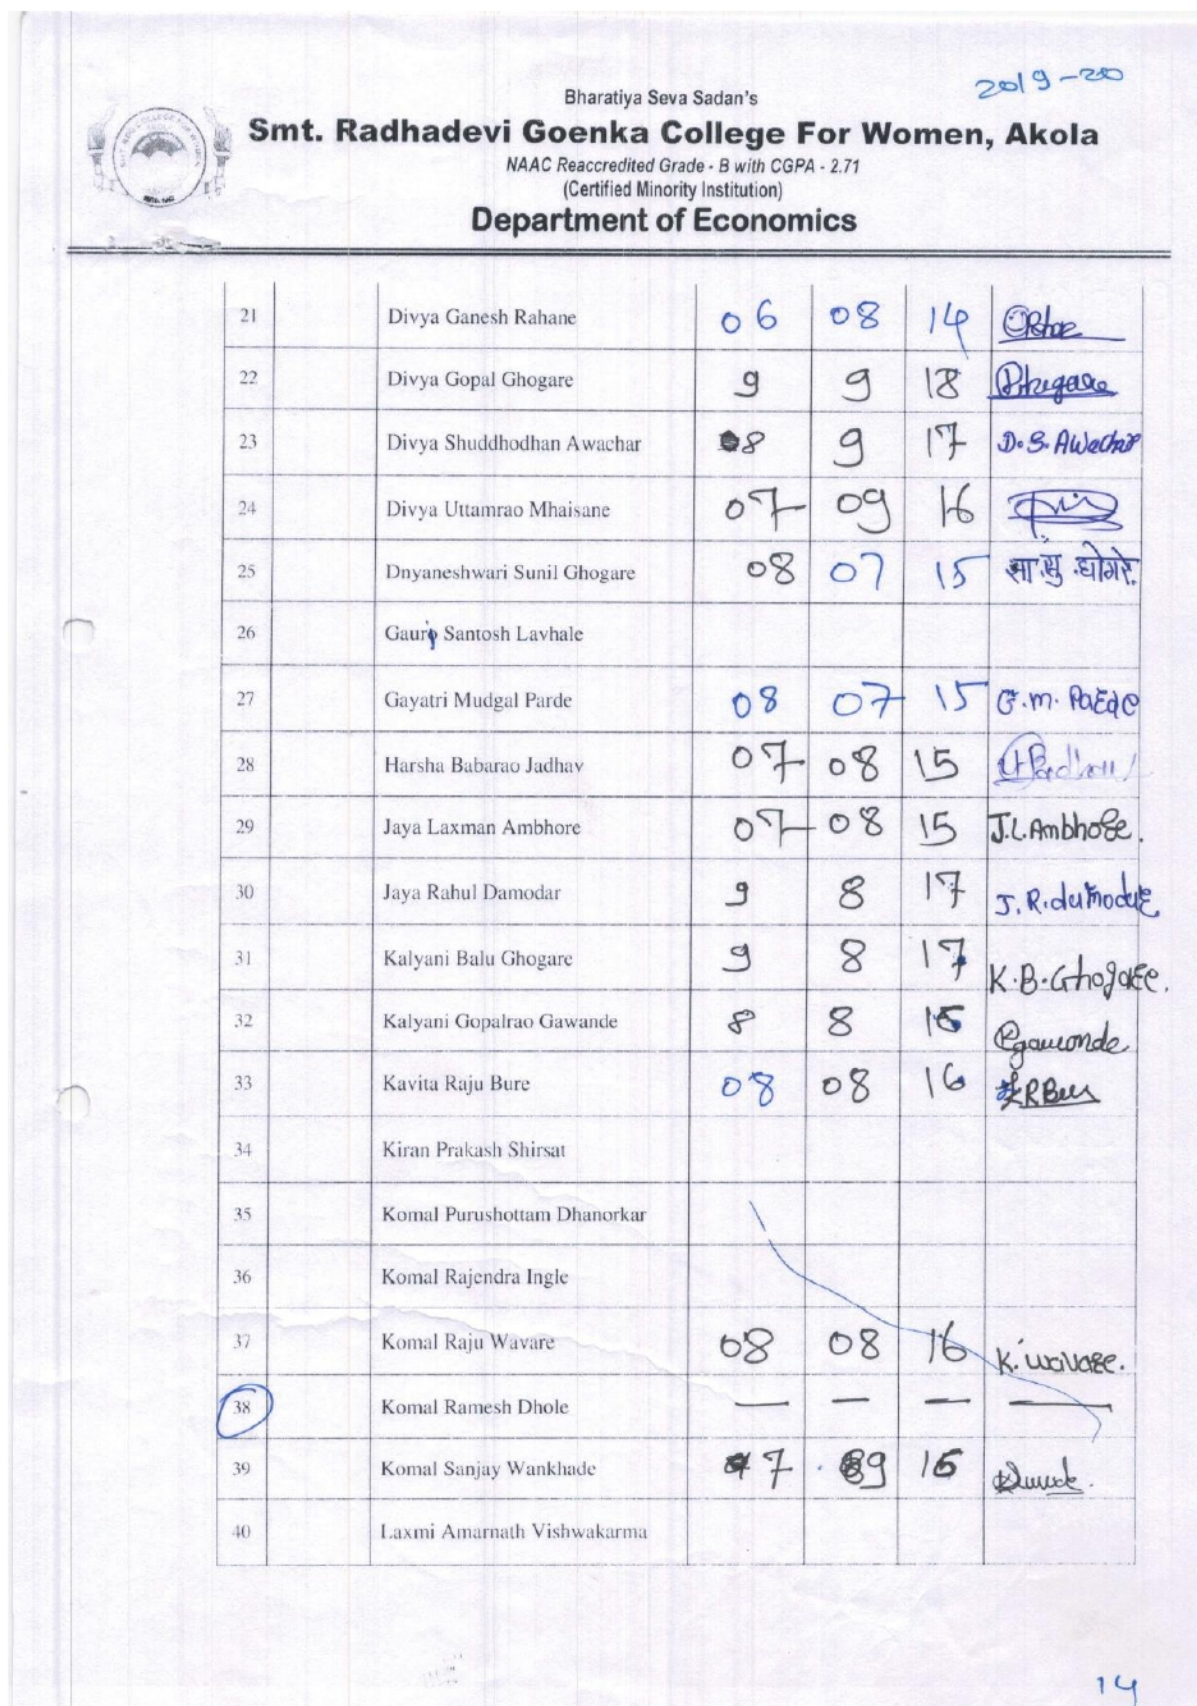 2019-20
Bharatiya Seva Sadan's
Smt. Radhadevi Goenka College For Women, Akola
NAAC Reaccredited Grade - B with CGPA - 2.71
(Certified Minority Institution)
Department of Economics
21 Divya Ganesh Rahane 06 08 14
22 Divya Gopal Ghogare 9 9 18
23 Divya Shuddhodhan Awachar 8 9 17 D.S. Awachar
24 Divya Uttamrao Mhaisane 07 09 16
25 Dnyaneshwari Sunil Ghogare 08 07 15 सा.सु.घोगरे.
26 Gauri Santosh Lavhale
27 Gayatri Mudgal Parde 08 07 15 G.m. Parde
28 Harsha Babarao Jadhav 07 08 15
29 Jaya Laxman Ambhore 07 08 15 J.L.Ambhore.
30 Jaya Rahul Damodar 9 8 17 J.R.
31 Kalyani Balu Ghogare 9 8 17 K.B.Ghogare.
32 Kalyani Gopalrao Gawande 8 8 16
33 Kavita Raju Bure 08 08 16
34 Kiran Prakash Shirsat
35 Komal Purushottam Dhanorkar
36 Komal Rajendra Ingle
37 Komal Raju Wavare 08 08 16 K. wavare.
38 Komal Ramesh Dhole — — — —
39 Komal Sanjay Wankhade 7 9 16
40 Laxmi Amarnath Vishwakarma
14